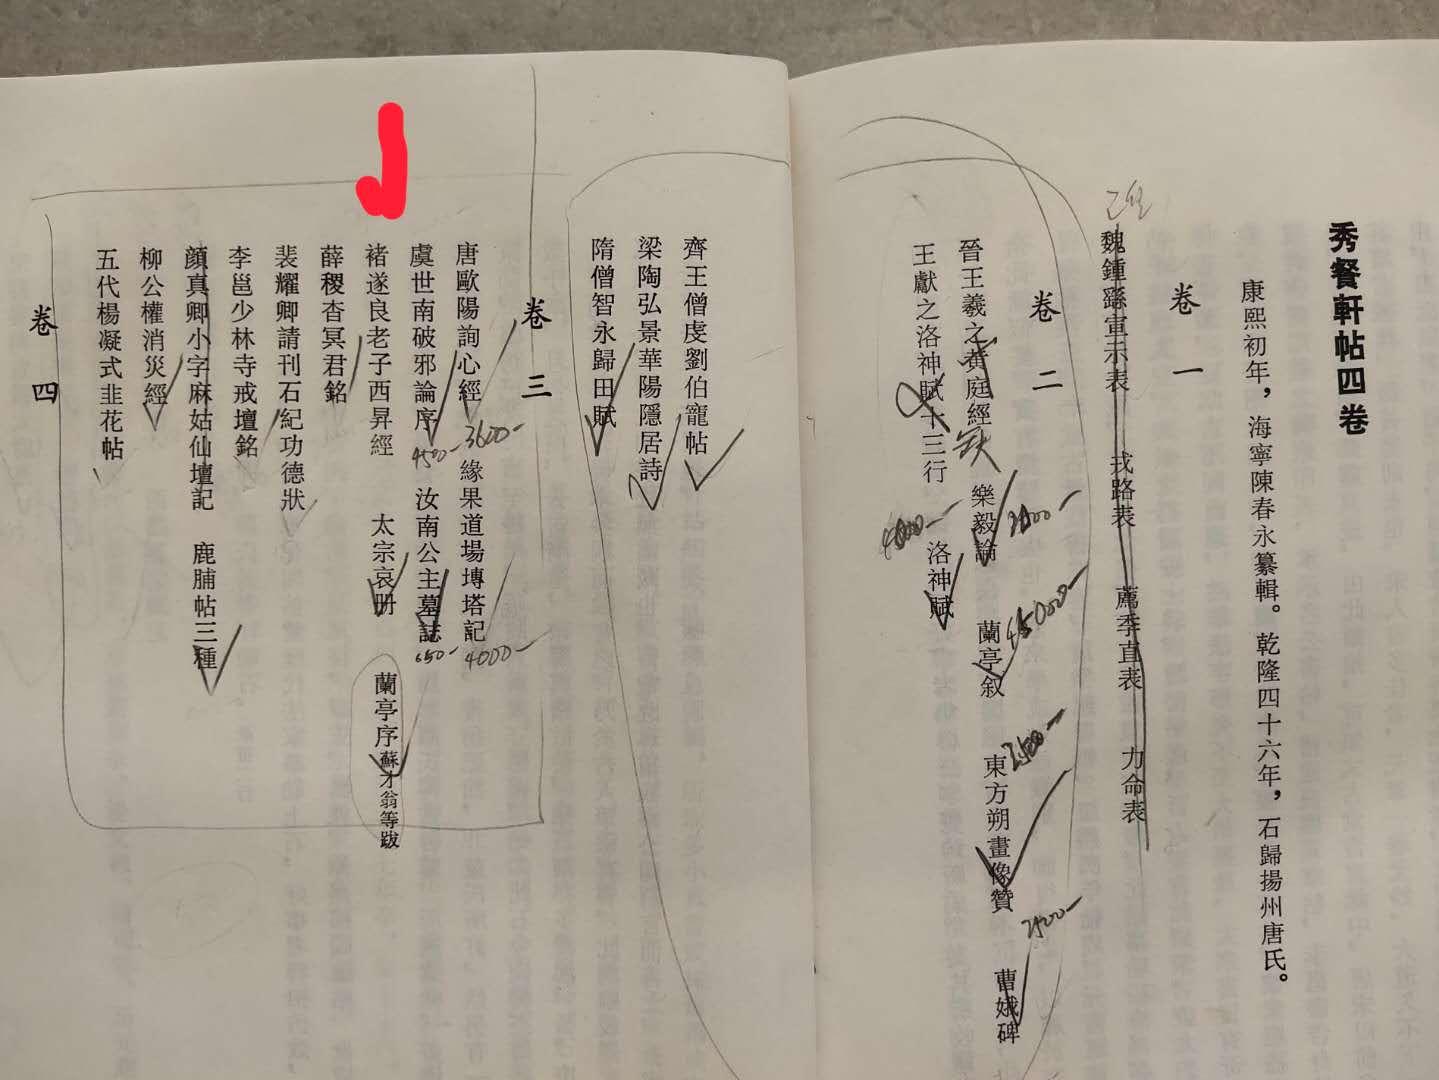 秀餐軒帖四卷
康熙初年，海寧陳春永纂輯。乾隆四十六年，石歸揚州唐氏。
卷一
魏鍾繇宣示表 戎路表 薦季直表 力命表
卷二
晉王羲之黃庭經 缺 樂毅論 蘭亭叙 東方朔畫像贊 曹娥碑
45000-
3500-
2500-
王獻之洛神賦十三行 洛神賦
齊王僧虔劉伯寵帖
梁陶弘景華陽隱居詩
隋僧智永歸田賦
卷三
唐歐陽詢心經 3600- 緣果道場塼塔記 4000-
虞世南破邪論序 4500- 汝南公主墓誌 650-
褚遂良老子西昇經 太宗哀册 蘭亭序蘇才翁等跋
薛稷杳冥君銘
裴耀卿請刊石紀功德狀
李邕少林寺戒壇銘
顔真卿小字麻姑仙壇記 鹿脯帖三種
柳公權消災經
五代楊凝式韭花帖
卷四